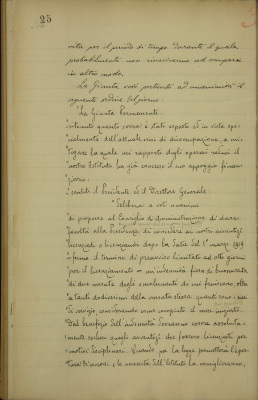 25
vata per il periodo di tempo durante il quale
probabilmente non riusciranno ad occuparsi
in altro modo.
La Giunta così pertanto ad unanimità il
seguente ordine del giorno:
"La Giunta Permanente
"ritenuto quanto sovra è stato esposto ed in vista spe-
"cialmente dell'attuale crisi di disoccupazione, a miti-
"gare la quale nei rapporti degli operai reduci il
"nostro Istituto ha già concesso il suo appoggio finan-
"ziario;
"sentiti il Presidente ed il Direttore Generale;
"Delibera a voti unanimi
"di proporre al Consiglio di Amministrazione di dare
"facoltà alla Presidenza di concedere ai nostri avventizi
"licenziati o licenziandi dopo la data del 1° marzo 1919
"e fermo il termine di preavviso limitato ad otto giorni
"per il licenziamento un'indennità fissa di buonuscita
"di due mensilità degli emolumenti di cui fruiscono, oltre
"a tanti dodicesimi della mensilità stessa quanti sono i mesi
"di servizio considerando come compiuto il mese iniziato.
"Dal beneficio dell'indennità dovranno essere assoluta-
"mente esclusi quegli avventizi che fossero licenziati per
"motivi disciplinari. Quando poi la legge permetterà l'
"e le necessità dell'Istituto lo consiglieranno,